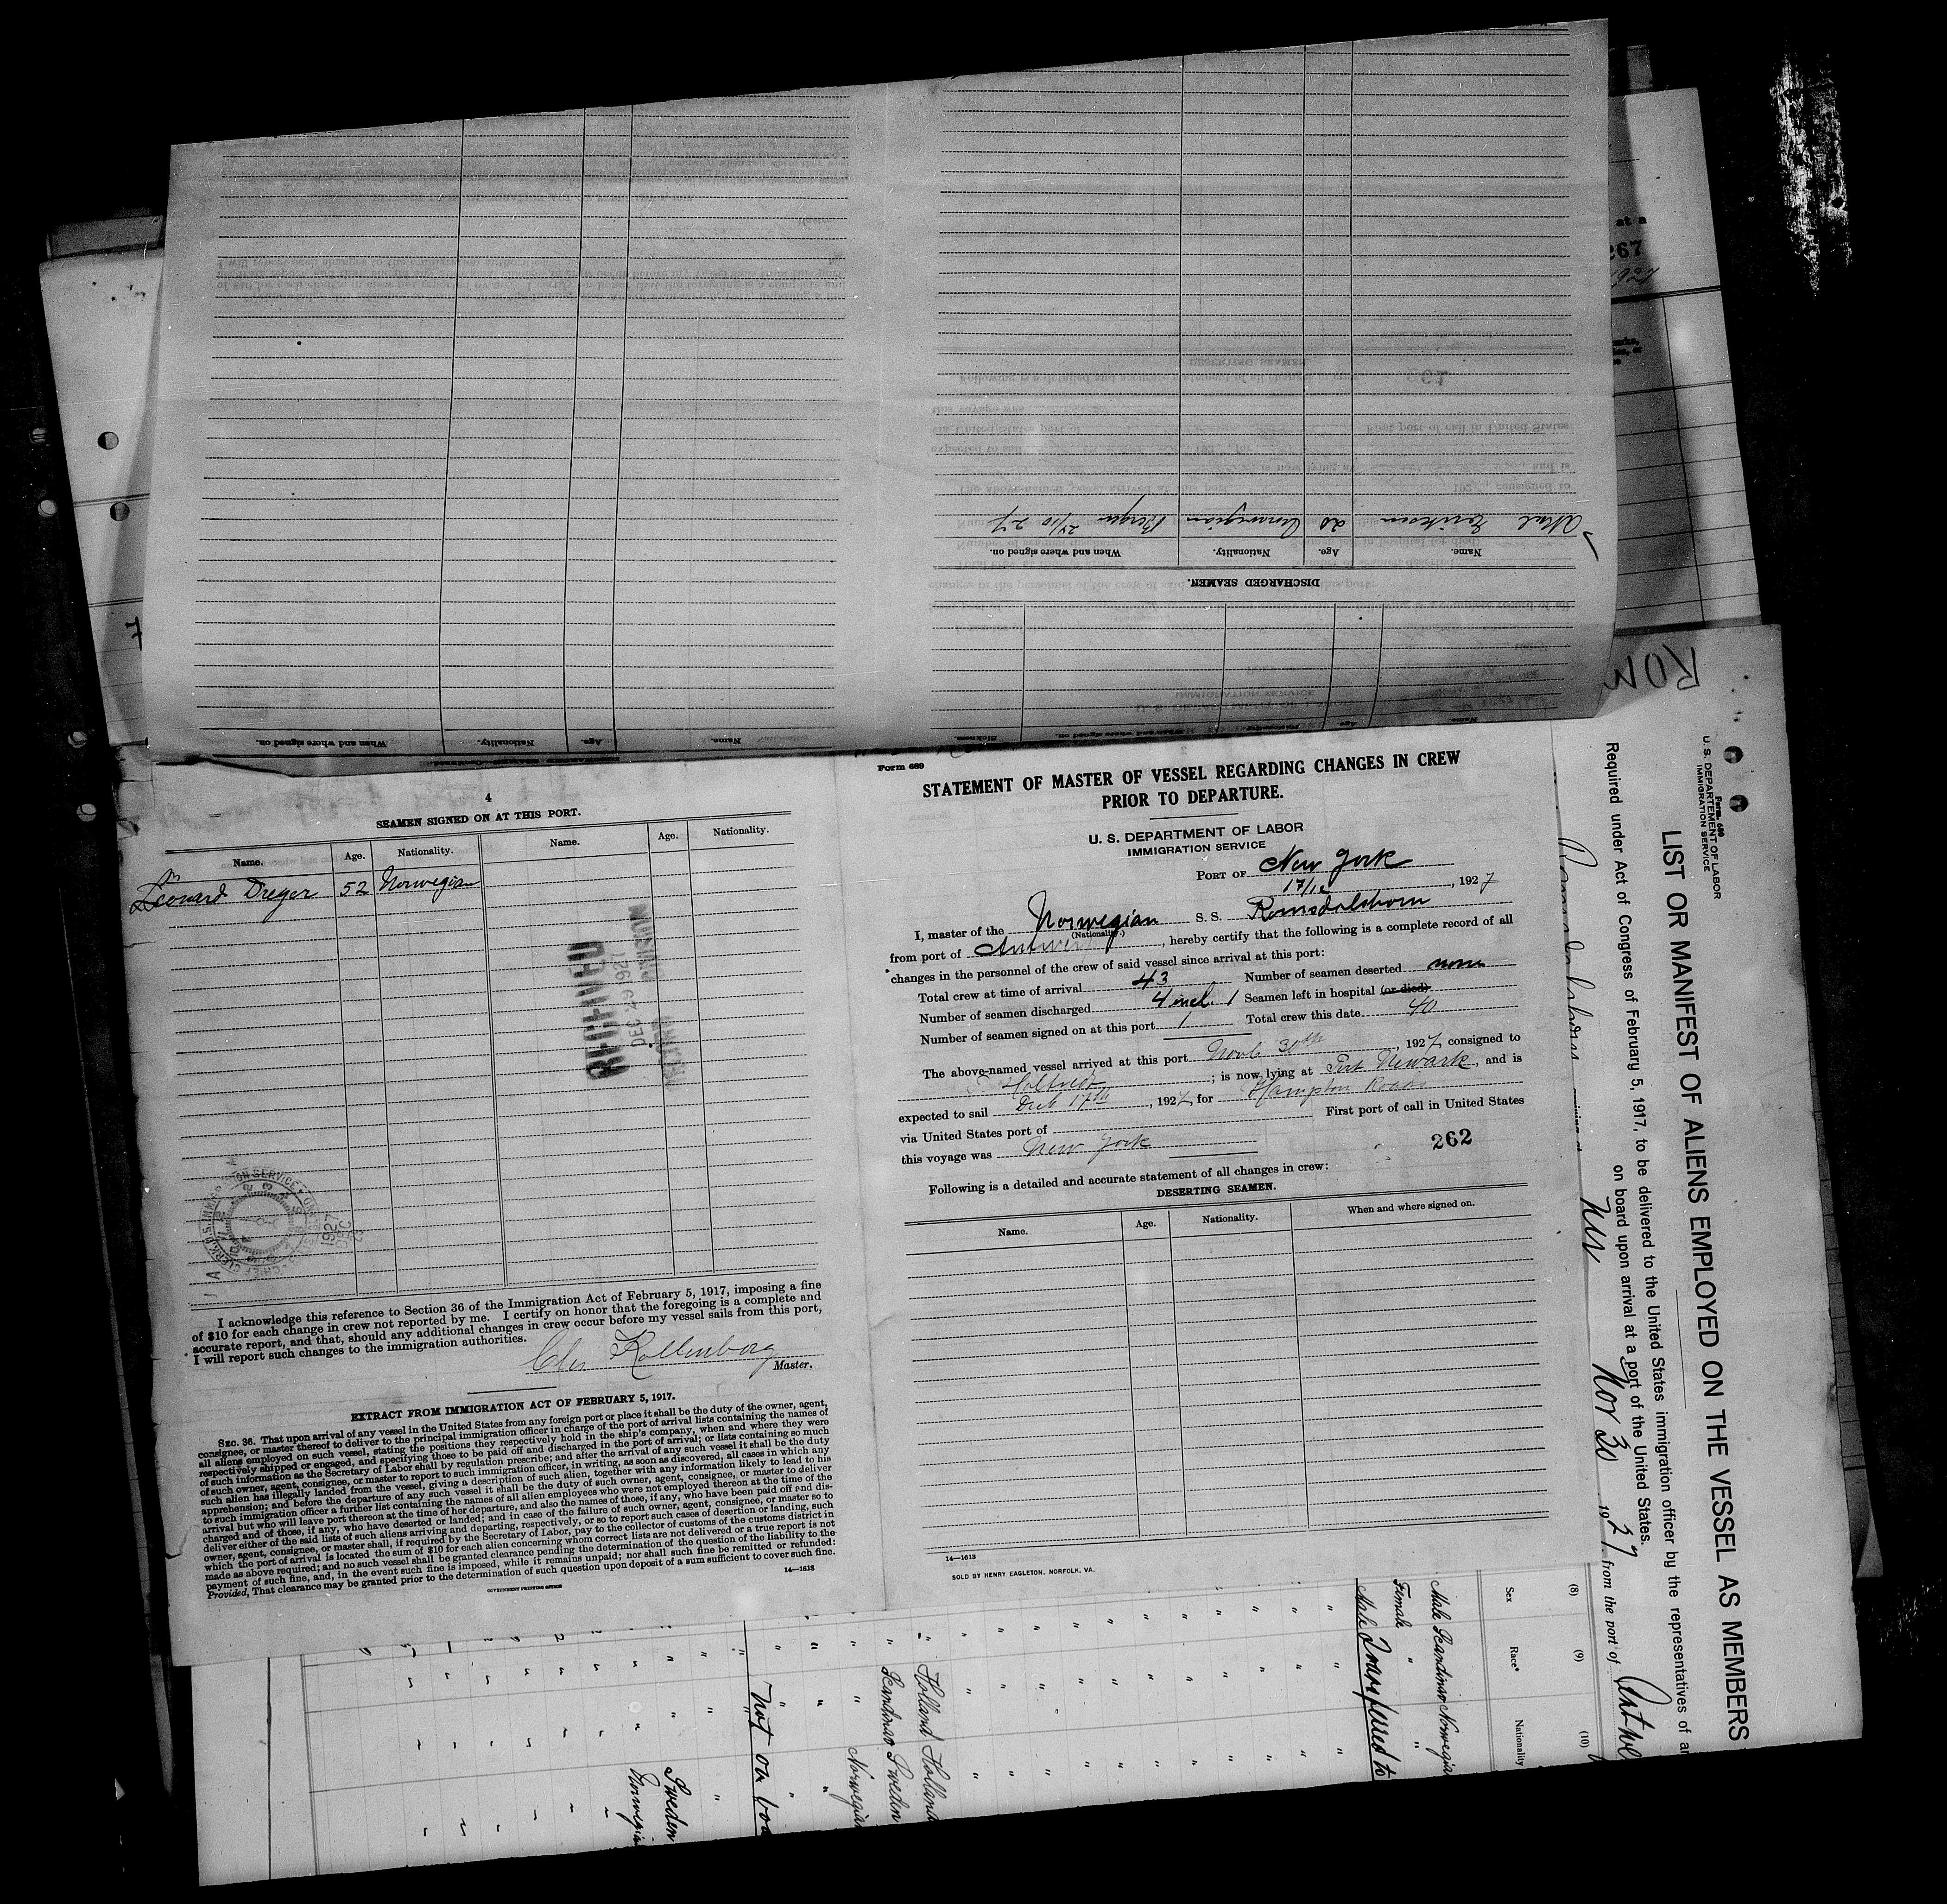 Name.
Age.
Nationality.
When and where signed on.
When and where signed on.
Sickness.
Name.
Age.
Nationality.
DISCHARGED SEAMEN.
Name.
Age.
Nationality.
When and where signed on.
Eriksen 20 Norwegian Bergen 24/10 27
at a
267
4
SEAMEN SIGNED ON AT THIS PORT.
Name. Age. Nationality. Name. Age. Nationality.
Leonard Dreyer 52 Norwegian
DEC 19 1927
I acknowledge this reference to Section 36 of the Immigration Act of February 5, 1917, imposing a fine
of $10 for each change in crew not reported by me. I certify on honor that the foregoing is a complete and
accurate report, and that, should any additional changes in crew occur before my vessel sails from this port,
I will report such changes to the immigration authorities.
Kollenborg
Master.
EXTRACT FROM IMMIGRATION ACT OF FEBRUARY 5, 1917.
SEC. 36. That upon arrival of any vessel in the United States from any foreign port or place it shall be the duty of the owner, agent,
consignee, or master thereof to deliver to the principal immigration officer in charge of the port of arrival lists containing the names of
all aliens employed on such vessel, stating the positions they respectively hold in the ship's company, when and where they were
respectively shipped or engaged, and specifying those to be paid off and discharged in the port of arrival; or lists containing so much
of such information as the Secretary of Labor shall by regulation prescribe; and after the arrival of any such vessel it shall be the duty
of such owner, agent, consignee, or master to report to such immigration officer, in writing, as soon as discovered, all cases in which any
such alien has illegally landed from the vessel, giving a description of such alien, together with any information likely to lead to his
apprehension; and before the departure of any such vessel it shall be the duty of such owner, agent, consignee, or master to deliver
to such immigration officer a further list containing the names of all alien employees who were not employed thereon at the time of the
arrival but who will leave port thereon at the time of her departure, and also the names of those, if any, who have been paid off and dis-
charged and of those, if any, who have deserted or landed; and in case of the failure of such owner, agent, consignee, or master so to
deliver either of the said lists of such aliens arriving and departing, respectively, or so to report such cases of desertion or landing, such
owner, agent, consignee, or master shall, if required by the Secretary of Labor, pay to the collector of customs of the customs district in
which the port of arrival is located the sum of $10 for each alien concerning whom correct lists are not delivered or a true report is not
made as above required; and no such vessel shall be granted clearance pending the determination of the question of the liability to the
payment of such fine, and, in the event such fine is imposed, while it remains unpaid; nor shall such fine be remitted or refunded:
Provided, That clearance may be granted prior to the determination of such question upon deposit of a sum sufficient to cover such fine.
14—1613
GOVERNMENT PRINTING OFFICE
Form 689
STATEMENT OF MASTER OF VESSEL REGARDING CHANGES IN CREW
PRIOR TO DEPARTURE.
U. S. DEPARTMENT OF LABOR
IMMIGRATION SERVICE
PORT OF New York
17/12, 1927
I, master of the Norwegian S. S. Romsdalshorn
(Nationality.)
from port of Antwer, hereby certify that the following is a complete record of all
changes in the personnel of the crew of said vessel since arrival at this port:
Total crew at time of arrival 43 Number of seamen deserted none
Number of seamen discharged 4 incl. 1 Seamen left in hospital (or died)
Number of seamen signed on at this port 1 Total crew this date 40
The above-named vessel arrived at this port Novb 30th, 1927 consigned to
; is now lying at Port Newark, and is
expected to sail Decb 17th, 1927, for Hampton Roads
via United States port of First port of call in United States
this voyage was New York
262
Following is a detailed and accurate statement of all changes in crew:
DESERTING SEAMEN.
Name. Age. Nationality. When and where signed on.
14—1613
SOLD BY HENRY EAGLETON, NORFOLK, VA.
ROM
Form 680
U. S. DEPARTMENT OF LABOR
IMMIGRATION SERVICE
LIST OR MANIFEST OF ALIENS EMPLOYED ON THE VESSEL AS MEMBERS
Required under Act of Congress of February 5, 1917, to be delivered to the United States immigration officer by the representatives of
on board upon arrival at a port of the United States.
Romsdalshorn
Nov 30 1927 from the port of Antwe
(8) (9) (10)
Sex Race* Nationality
Male Scandinav Norwegia
Female " "
Male Transferred to
Holland Holland
Scandinav Sweden
" Norwegian
Not on boa
Sweden
Norwegia